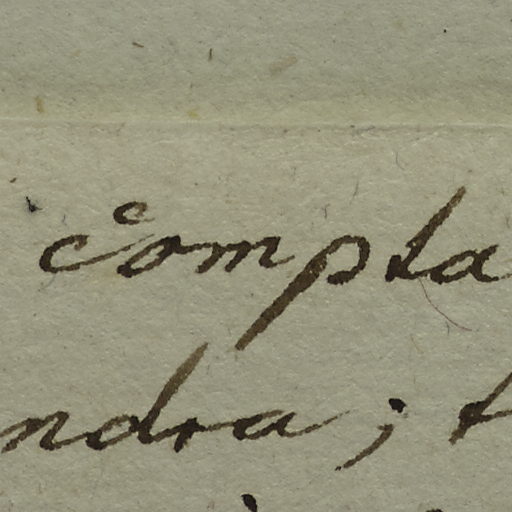 compta
ndra; t